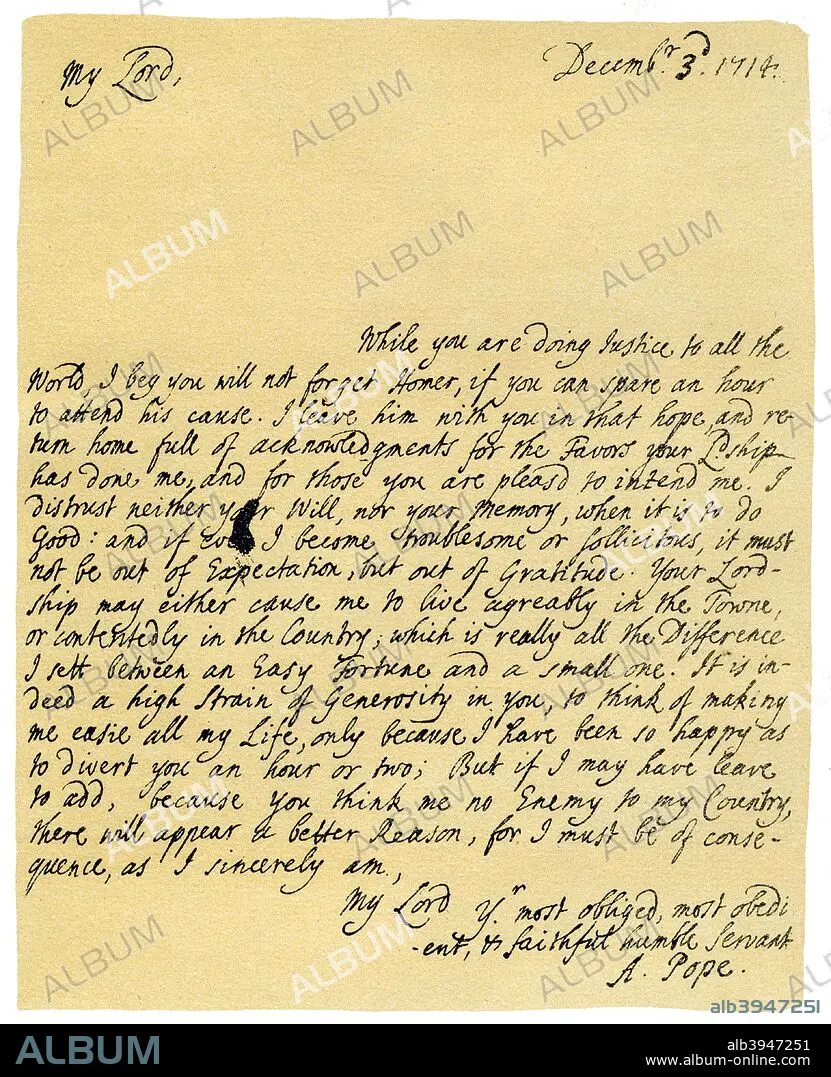 My Lord,
Decemb.r 3d. 1714.
While you are doing Justice to all the
World I beg you will not forget Homer, if you can spare an hour
to attend his cause. I leave him with you in that hope, and re-
turn home full of acknowledgments for the Favors your Ldship
has done me, and for those you are pleasd to intend me. I
distrust neither your Will, nor your Memory, when it is to do
Good: and if ever I become troublesome or sollicitous, it must
not be out of Expectation, but out of Gratitude. Your Lord-
ship may either cause me to live agreably in the Towne,
or contentedly in the Country; which is really all the Difference
I sett between an Easy Fortune and a small one. It is in-
deed a high Strain of Generosity in you, to think of making
me easie all my Life, only because I have been so happy as
to divert you an hour or two; But if I may have leave
to add, because you think me no Enemy to my Country,
there will appear a better Reason, for I must be of conse-
quence, as I sincerely am,
My Lord Yr. most obliged, most obedi
-ent, & faithful humble Servant
A. Pope.
alb3947251
ALBUM
alb3947251
www.album-online.com